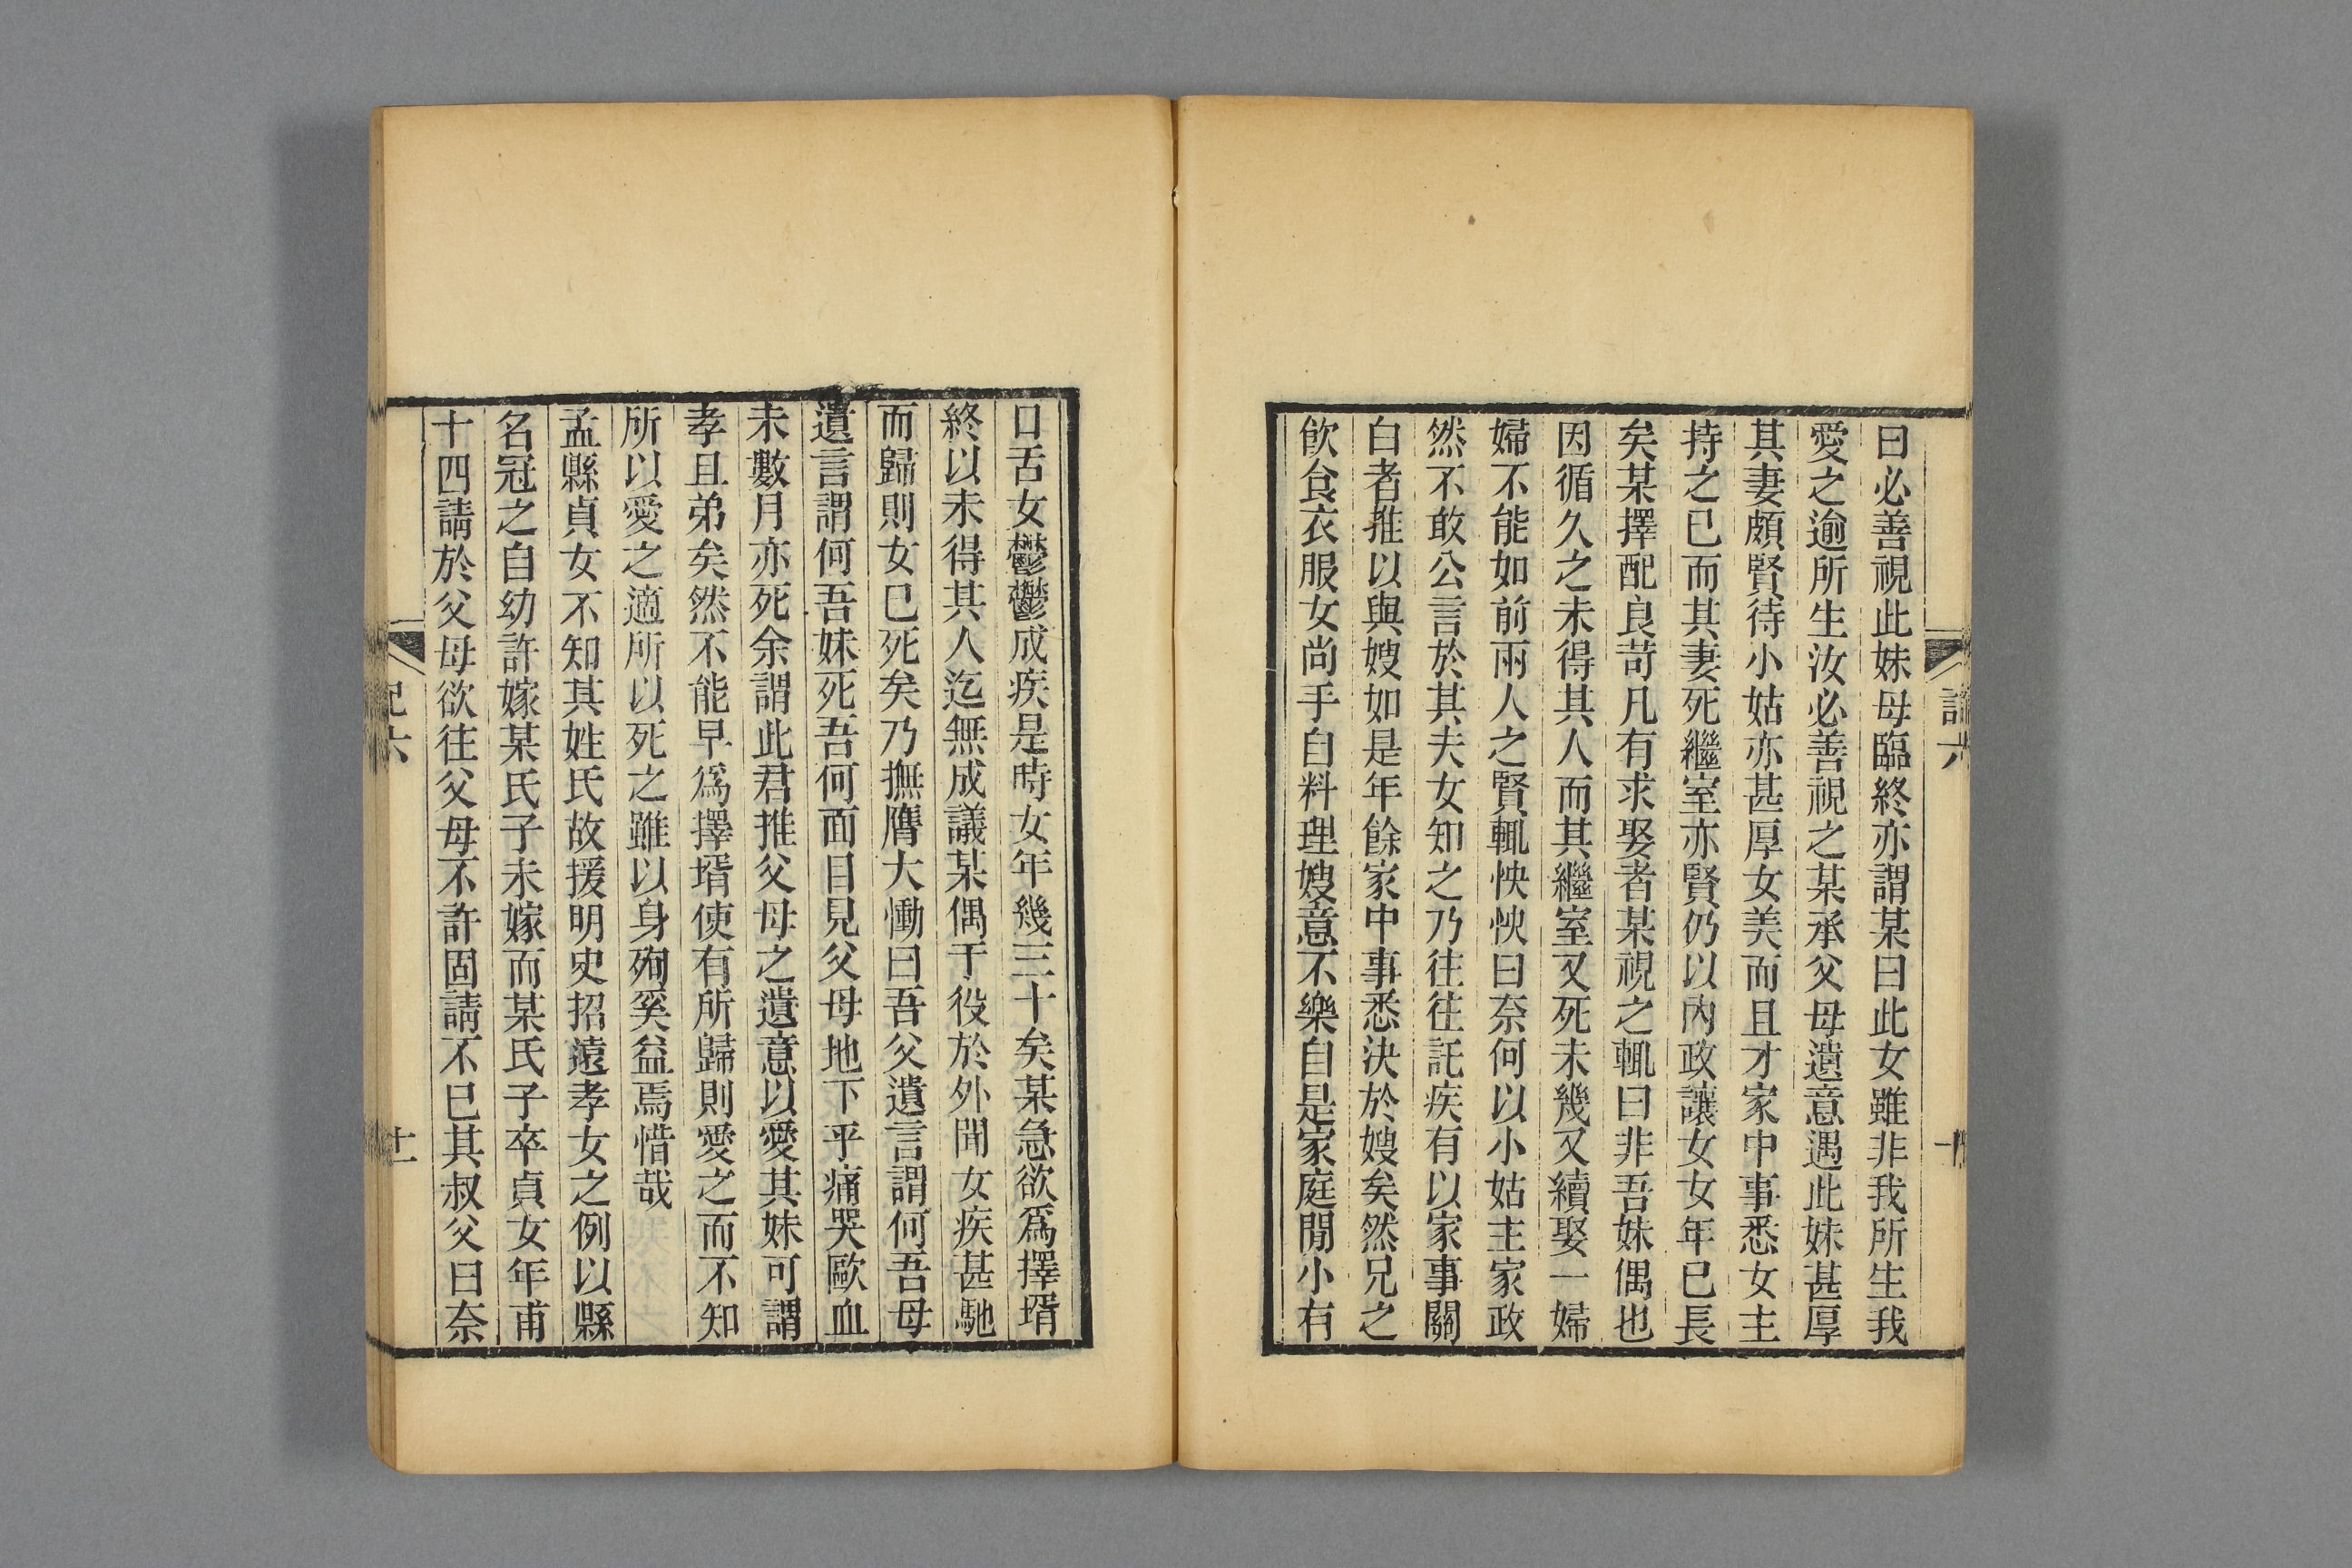 曰必善視此妹母臨終亦謂某曰此女雖非我所生我
愛之逾所生汝必善視之某承父母遺意遇此妹甚厚
其妻頗賢待小姑亦甚厚女美而且才家中事悉女主
持之已而其妻死繼室亦賢仍以內政讓女女年已長
矣某擇配良苛凡有求娶者某視之輒曰非吾妹偶也
因循久之未得其人而其繼室又死未幾又續娶一婦
婦不能如前兩人之賢輒怏怏曰奈何以小姑主家政
然不敢公言於其夫女知之乃往往託疾有以家事關
白者推以與嫂如是年餘家中事悉決於嫂矣然兄之
飲食衣服女尚手自料理嫂意不樂自是家庭閒小有
口舌女鬱鬱成疾是時女年幾三十矣某急欲為擇壻
終以未得其人迄無成議某偶于役於外聞女疾甚馳
而歸則女已死矣乃撫膺大慟曰吾父遺言謂何吾母
遺言謂何吾妹死吾何面目見父母地下乎痛哭歐血
未數月亦死余謂此君推父母之遺意以愛其妹可謂
孝且弟矣然不能早為擇壻使有所歸則愛之而不知
所以愛之適所以死之雖以身殉奚益焉惜哉
孟縣貞女不知其姓氏故援明史招遠孝女之例以縣
名冠之自幼許嫁某氏子未嫁而某氏子卒貞女年甫
十四請於父母欲往父母不許固請不已其叔父曰奈
十一